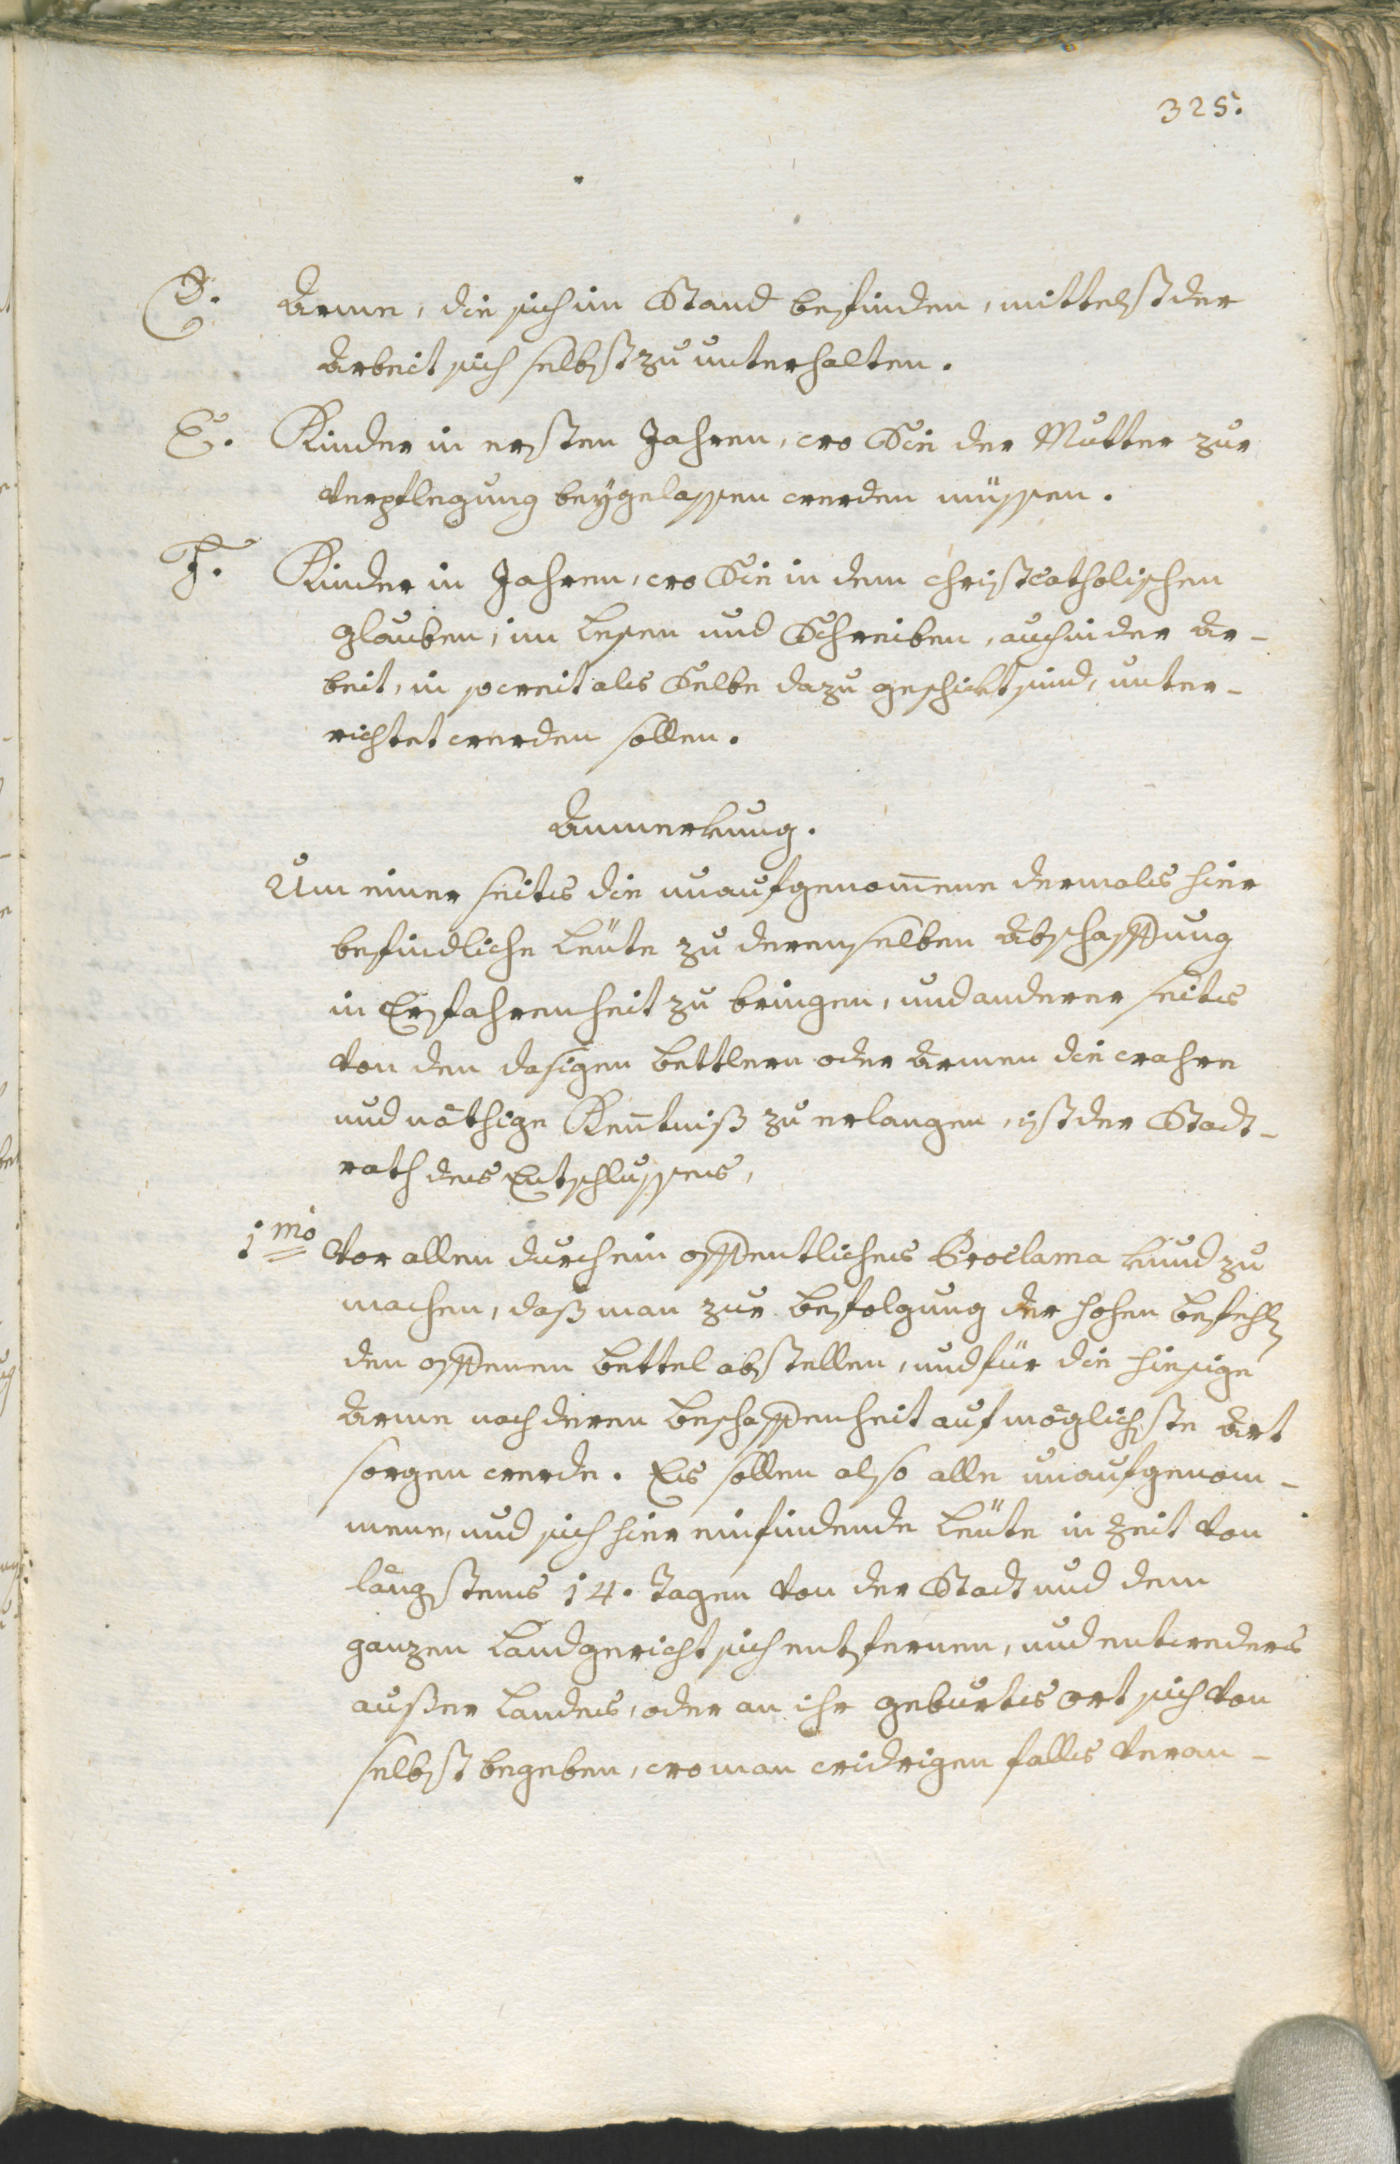 325.
D. Arme, die sich im Stand befinden, mittelst der
Arbeit sich selbst zu unterhalten.
E. Kinder in ersten Jahren, wo Sie der Mutter zur
Verpflegung beÿgelassen werden müssen.
F. Kinder in Jahren, wo Sie in dem christcatholischen
glauben, im Lesen und Schreiben, auch in der Ar-
beit, in soweit als Selbe dazu geschickt sind, unter-
richtet werden sollen.
Anmerkung.
Um einer seits die unaufgenom̅ene dermals hier
befindliche Leüte zu derenselben Abschaffung
in Erfahrenheit zu bringen, und anderer seits
von den dasigen bettlern oder Armen die wahre
und nöthige Ken̅tniß zu erlangen, ist der Stadt-
rath des Entschlusses,
1mo Vor allen durch ein offentliches Proclama kund zu
machen, daß man zur befolgung der hohen befehle
den offenen bettel abstellen, und für die hiesige
Arme nach deren beschaffenheit auf möglichste Art
sorgen werde. Es sollen also alle unaufgenom-
mene, und sich hier einfindende Leüte in Zeit von
längstens 14. Tagen von der Stadt und dem
ganzen Landgericht sich entfernen, und entweders
außer Landes, oder an ihr geburts ort sich von
selbst begeben, wo man widrigen falls veran-